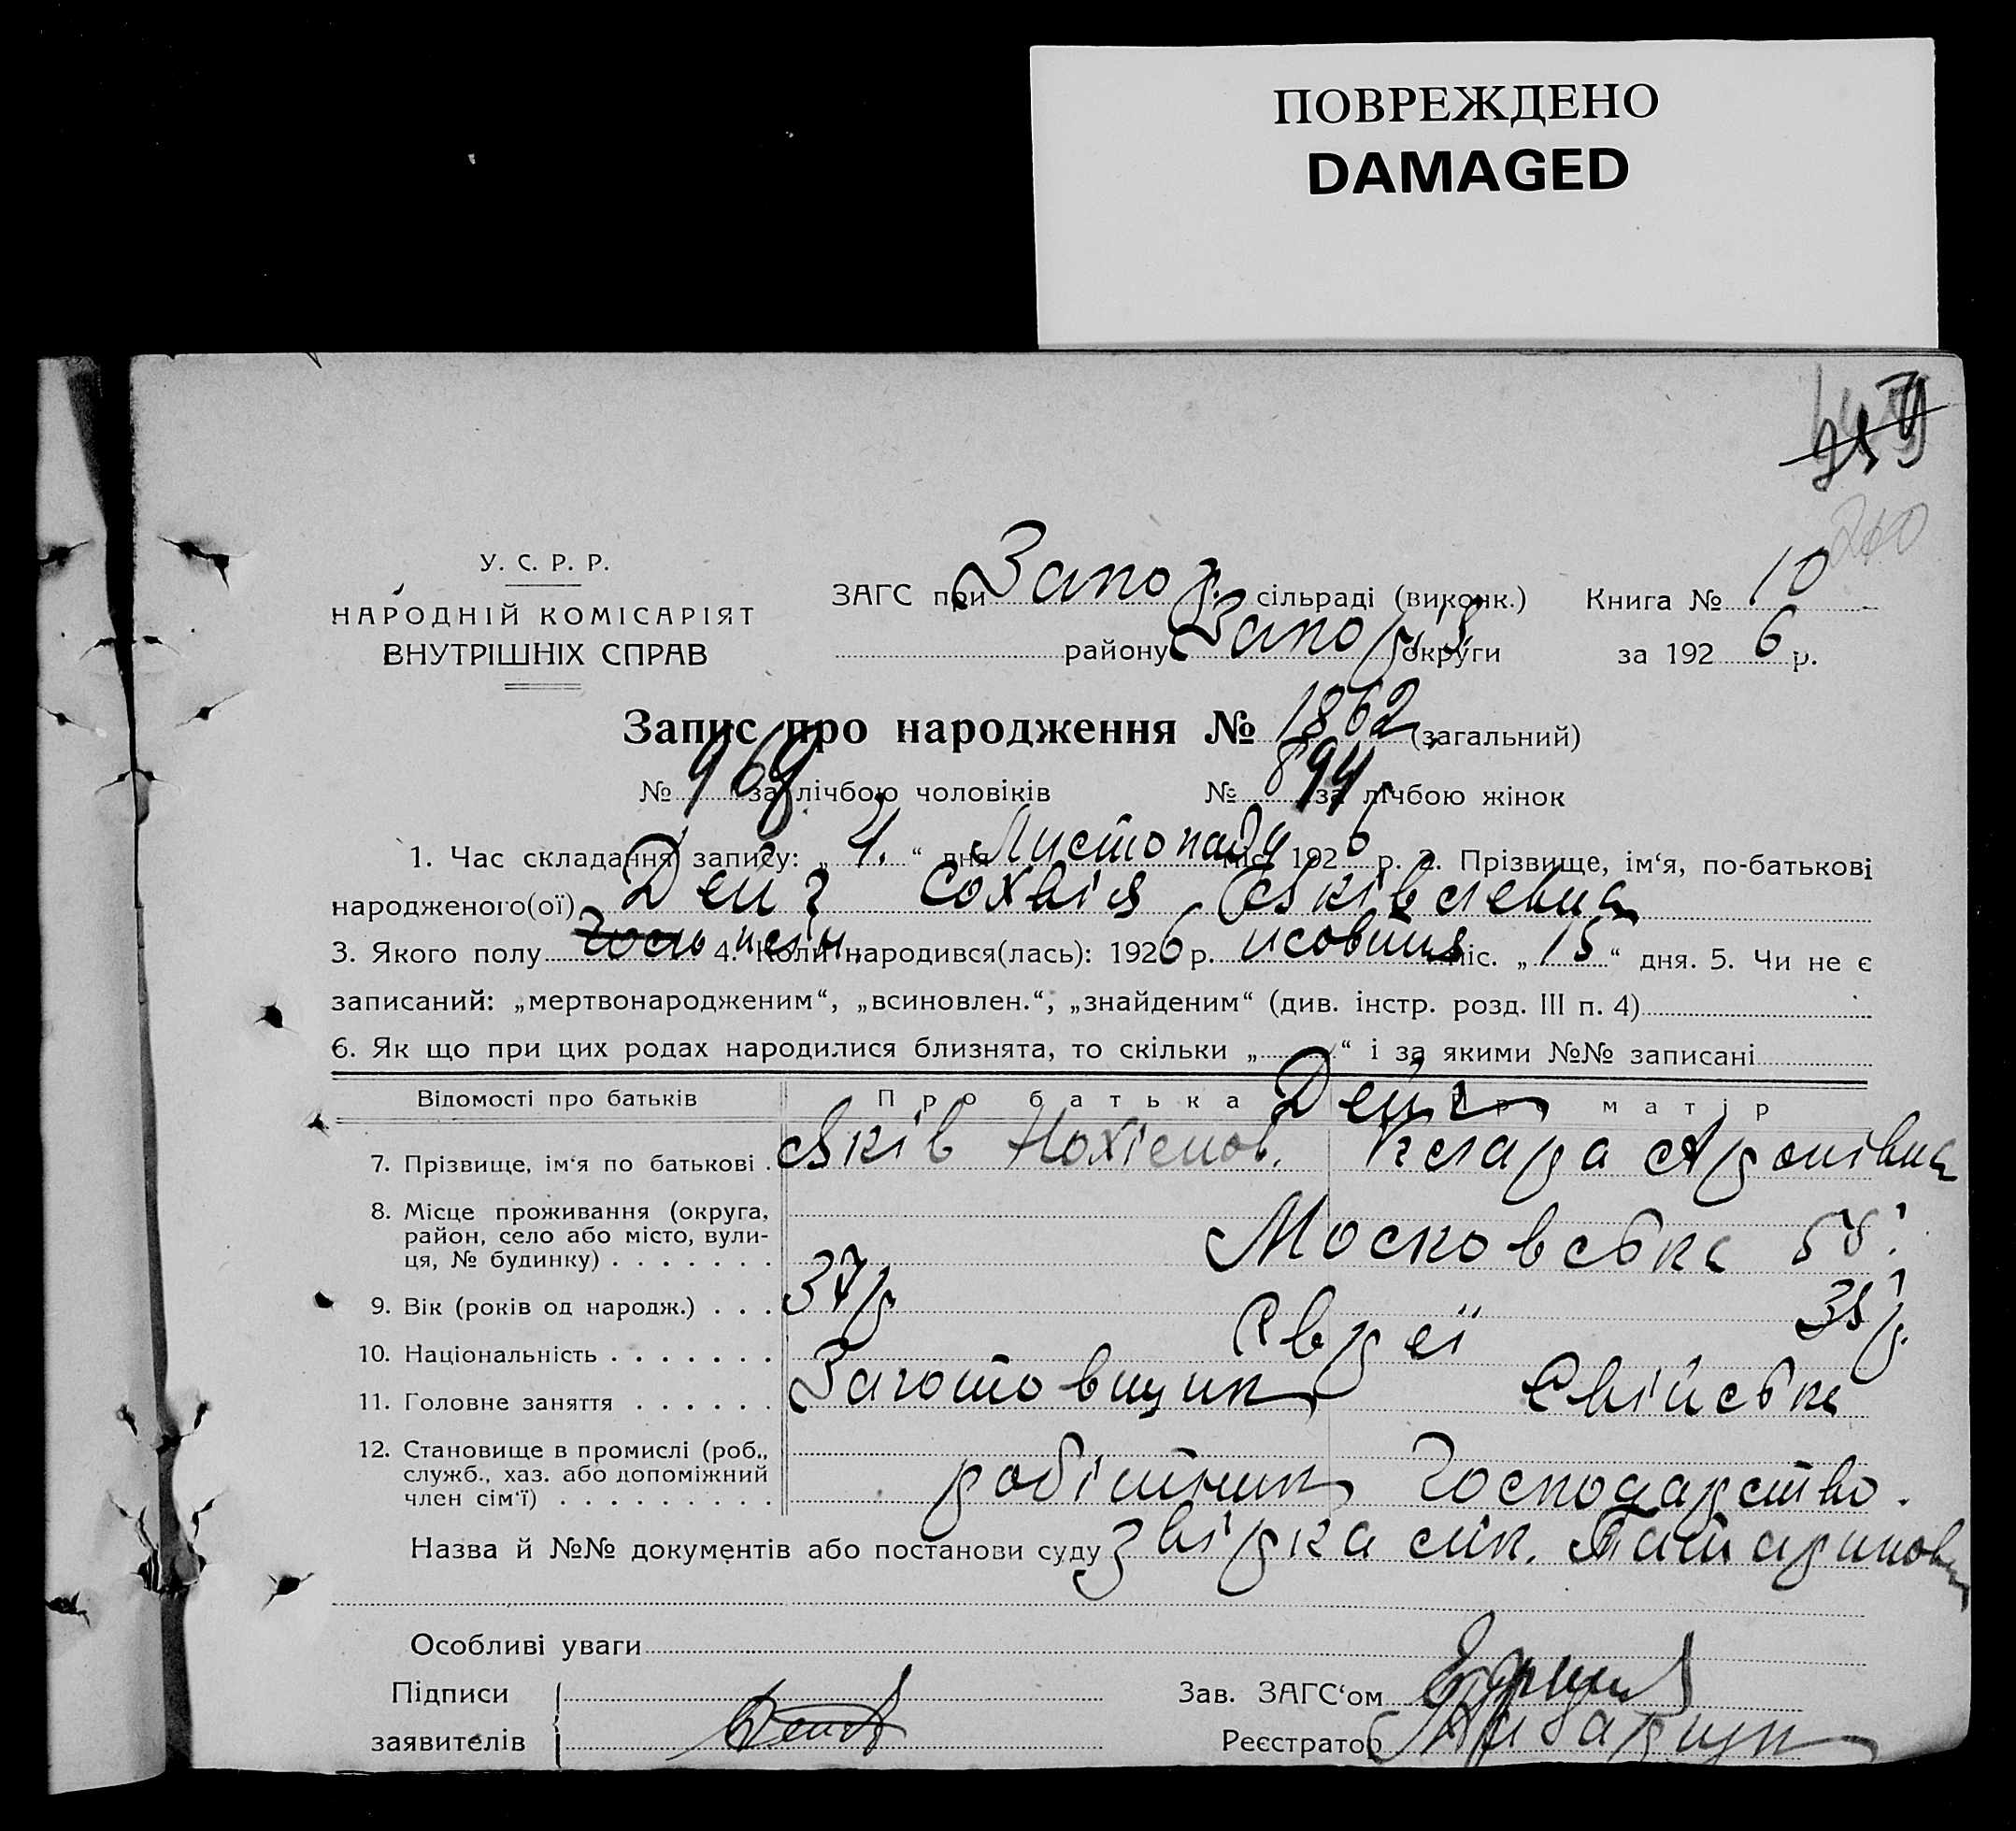 ПОВРЕЖДЕНО
DAMAGED
У. С. Р. Р.
НАРОДНІЙ КОМІСАРІЯТ
ВНУТРІШНІХ СПРАВ
ЗАГС при Запор. сільраді (виконк.) Книга № 10
району Запоріз округи за 1926 р.
Запис про народження № 1862 (загальний)
№ 968 за лічбою чоловіків № 894 за лічбою жінок
1. Час складання запису: „ 1. “ дня Листопаду міс. 1926 р. 2. Прізвище, ім‘я, по-батькові
народженого(ої) Дейч Сохвія Яківлевна
3. Якого полу жін. 4. Коли народився(лась): 1926 р. жовтня міс. „ 15 “ дня. 5. Чи не є
записаний: „мертвонародженим“, „всиновлен.“, „знайденим“ (див. інстр. розд. III п. 4)
6. Як що при цих родах народилися близнята, то скільки „ “ і за якими №№ записані
Відомості про батьків Про батька Про матір
Дейч
7. Прізвище, ім‘я по батькові . Яків Нохімов. Клара Аронівна
8. Місце проживання (округа, район, село або місто, вулиця, № будинку) . . . . . . . Московська
9. Вік (років од народж.) . . . 37 р 35 р.
10. Національність . . . . . . . Євреї
11. Головне заняття . . . . . . Заготовщик Свійське
12. Становище в промислі (роб., служб., хаз. або допоміжний член сім‘ї) . . . . . . . . . робітник господарство.
Назва й №№ документів або постанови суду
Особливі уваги
Підписи
заявителів
Зав. ЗАГС‘ом
Реєстратор